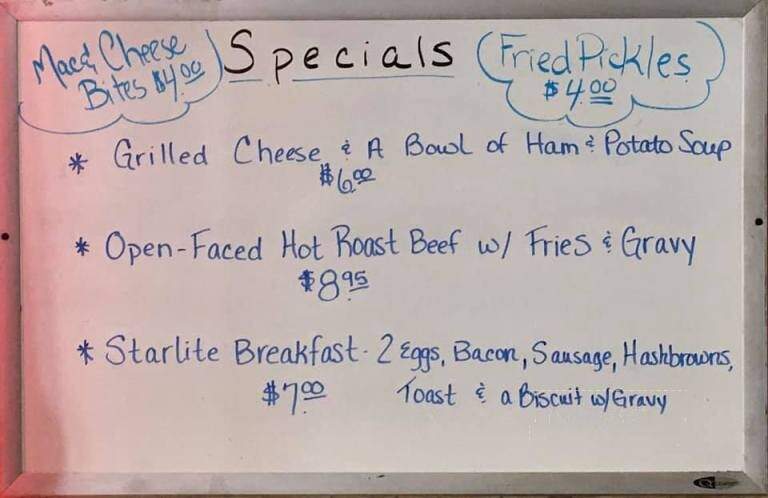 Mac & Cheese
Bites $4.00
Specials
Fried Pickles
$4.00
* Grilled Cheese & A Bowl of Ham & Potato Soup
$6.00
* Open-Faced Hot Roast Beef w/ Fries & Gravy
$8.95
* Starlite Breakfast - 2 Eggs, Bacon, Sausage, Hashbrowns,
$7.00 Toast & a Biscuit w/Gravy